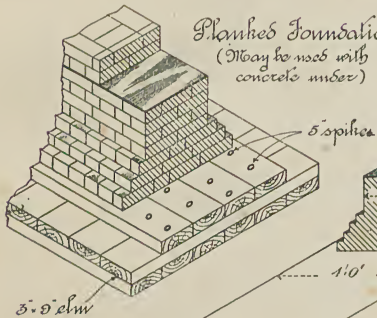 Planked Foundatio
(May be used with
concrete under)
5" spikes
1'0"
3" × 9" elm